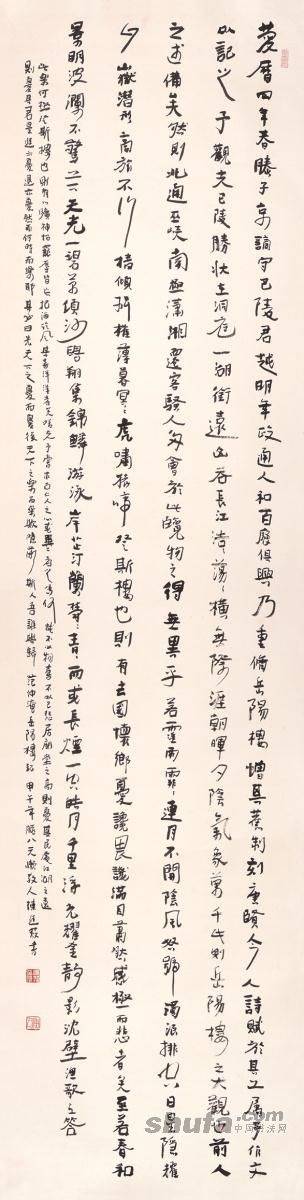 慶曆四年春滕子京謫守巴陵君越明年政通人和百廢俱興乃重脩岳陽樓增其舊制刻唐賢今人詩賦於其上屬予作文
以記之予觀夫巴陵勝狀在洞庭一湖銜遠山吞長江浩浩蕩蕩橫無際涯朝暉夕陰氣象萬千此則岳陽樓之大觀也前人
之述備矣然則北通巫峽南極瀟湘遷客騷人多會於此覽物之得無異乎若霪雨霏霏連月不開陰風怒號濁浪排空日星隱耀
山嶽潛形商旅不行檣傾楫摧薄暮冥冥虎嘯猿啼登斯樓也則有去國懷鄉憂讒畏譏滿目蕭然感極而悲者矣至若春和
景明波瀾不驚上下天光一碧萬頃沙鷗翔集錦鱗游泳岸芷汀蘭鬱鬱青青而或長煙一空皓月千里浮光耀金靜影沈璧漁歌互答
此樂何極登斯樓也則有心曠神怡寵辱皆忘把酒臨風其喜洋洋者矣嗟夫予嘗求古仁人之心或異二者之為何哉不以物喜不以己悲居廟堂之高則憂其民處江湖之遠
則憂其君是進亦憂退亦憂然則何時而樂耶其必曰先天下之憂而憂後天下之樂而樂歟噫微斯人吾誰與歸 范仲淹岳陽樓記 甲午年臘八 書
shufa.com
中国书法网